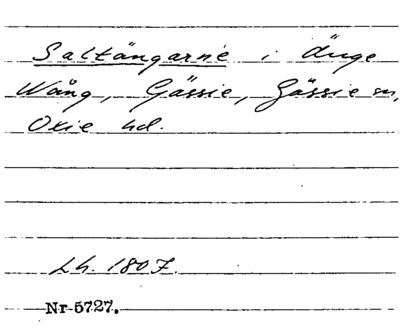 Saltängarne i Änge
Wång, Gässie, Gässie sn,
Oxie hd.
Lh. 1807.
Nr 5727.